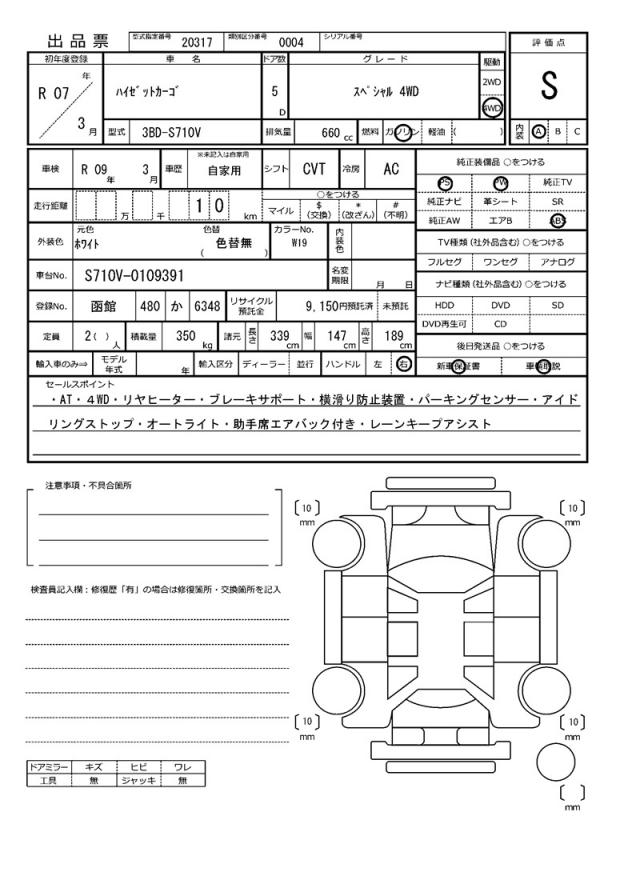 出品票 型式指定番号 20317 類別区分番号 0004 シリアル番号
評価点
S
初年度登録 車名 ドア数 グレード 駆動
R 07 年 3 月 ﾊｲｾﾞｯﾄｶｰｺﾞ 5 D ｽﾍﾟｼｬﾙ 4WD 2WD 4WD
型式 3BD-S710V 排気量 660 cc 燃料 ガソリン 軽油 ( )
内装 A B C
車検 R 09 年 3 月 車歴 ※未記入は自家用 自家用 シフト CVT 冷房 AC
走行距離 万 千 1 0 km
○をつける
マイル $ (交換) * (改ざん) # (不明)
外装色 元色 ﾎﾜｲﾄ 色替 色替無 ( ) カラーNo. W19 内装色
車台No. S710V-0109391 名変期限 月 日
登録No. 函館 480 か 6348 リサイクル預託金 9,150円預託済 未預託
定員 2( ) 人 積載量 350 kg 諸元 長さ 339 cm 幅 147 cm 高さ 189 cm
輸入車のみ⇒ モデル年式 年 輸入区分 ディーラー 並行 ハンドル 左 右
純正装備品 ○をつける
PS PW 純正TV
純正ナビ 革シート SR
純正AW エアB ABS
TV種類 (社外品含む) ○をつける
フルセグ ワンセグ アナログ
ナビ種類 (社外品含む) ○をつける
HDD DVD SD
DVD再生可 CD
後日発送品 ○をつける
新車保証書 車輌取説
セールスポイント
・AT・４WD・リヤヒーター・ブレーキサポート・横滑り防止装置・パーキングセンサー・アイド
リングストップ・オートライト・助手席エアバック付き・レーンキープアシスト
注意事項・不具合箇所
検査員記入欄：修復歴「有」の場合は修復箇所・交換箇所を記入
[10] mm
[10] mm
[10] mm
[10] mm
[ ] mm
ドアミラー キズ ヒビ ワレ
工具 無 ジャッキ 無